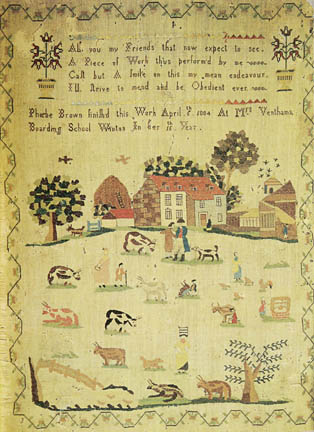 All you my Friends that now expect to see,
A Piece of Work thus perform'd by me
Cast but A Smile on this my mean endeavour,
I'll Strive to mend and be Obedient ever.
Phœbe Brown finish'd this Work April 1804 At Mrs Venthams
Boarding School Winton In her Year.